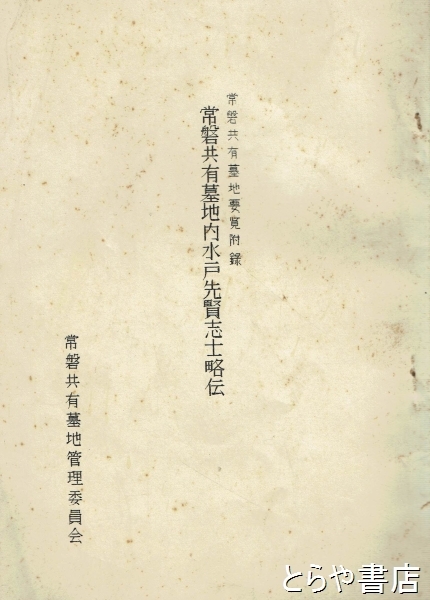 常磐共有墓地要覧附録
常磐共有墓地内水戸先賢志士略伝
常磐共有墓地管理委員会
とらや書店